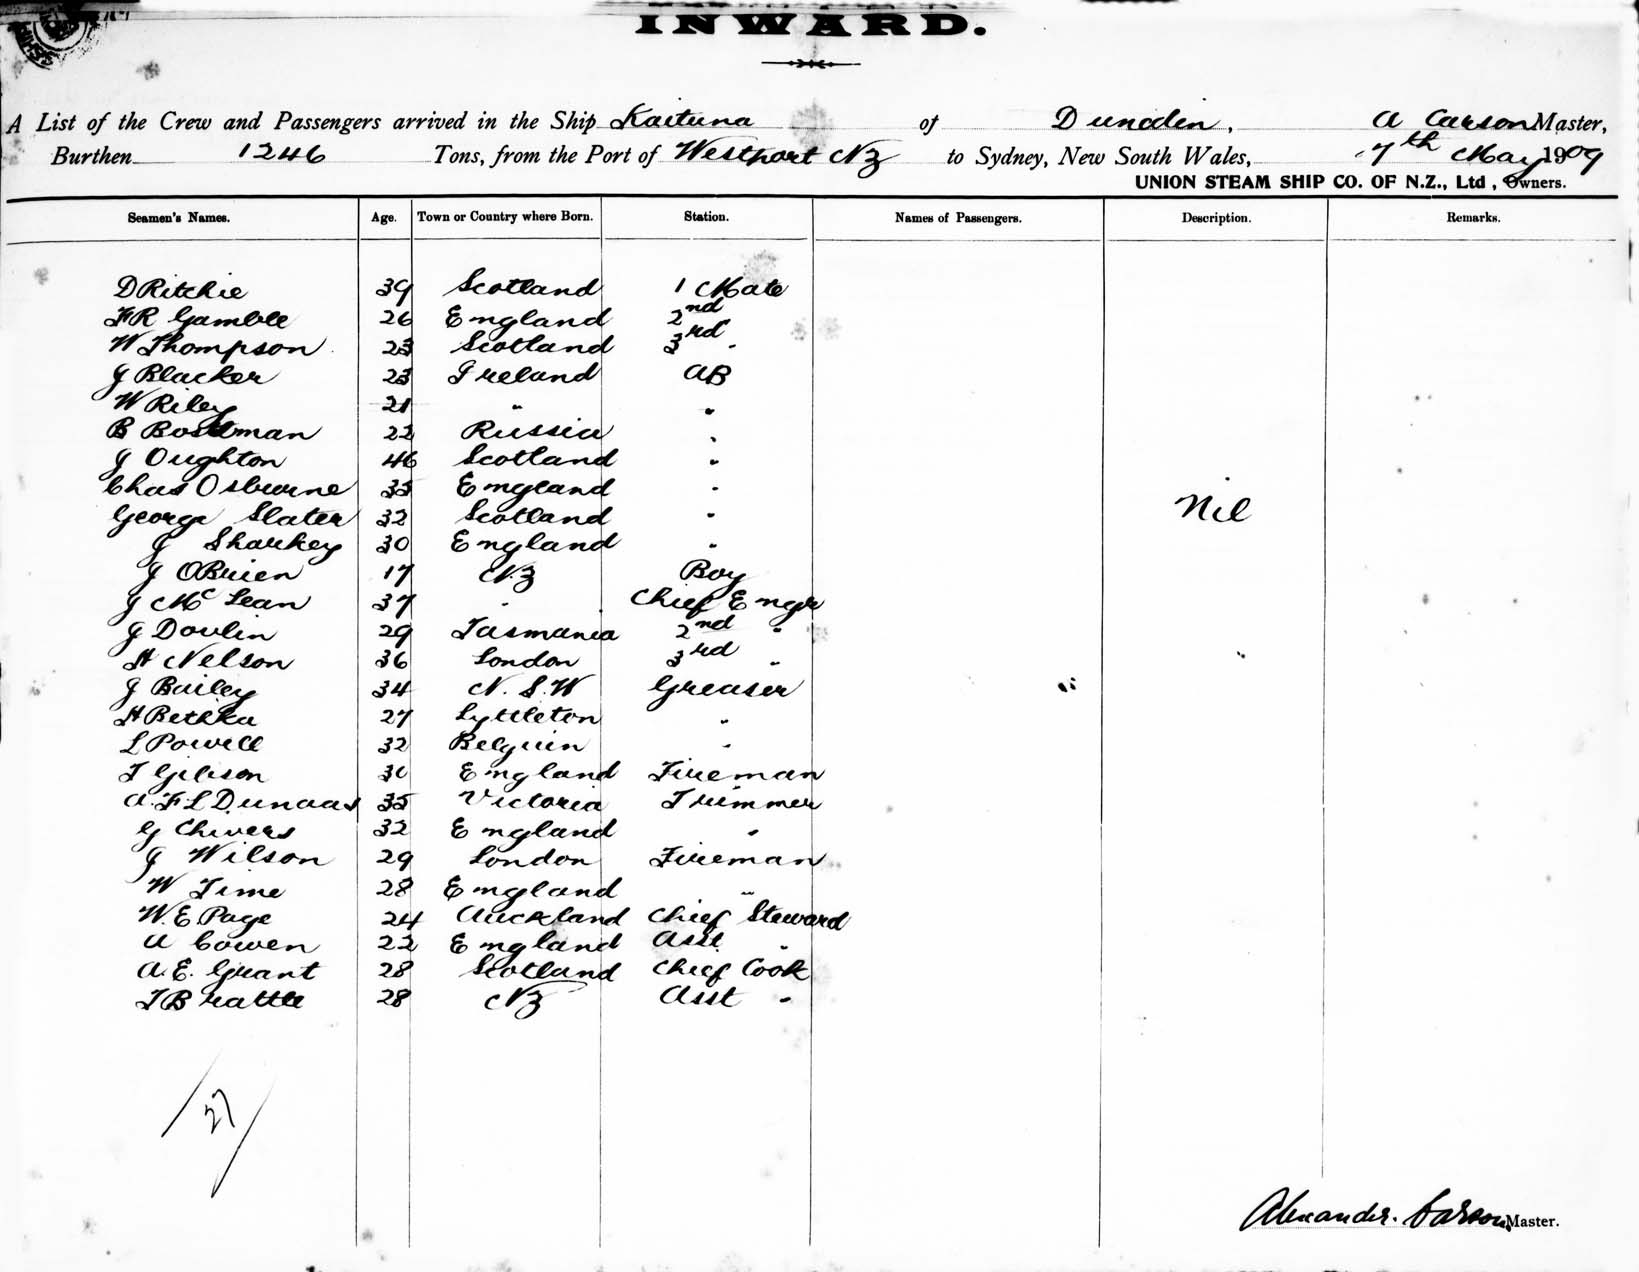 INWARD.
A List of the Crew and Passengers arrived in the Ship Kaituna of Dunedin, A Carson Master,
Burthen 1246 Tons, from the Port of Westport NZ to Sydney, New South Wales, 7th May 1909
UNION STEAM SHIP CO. OF N.Z., Ltd, Owners.
Seamen's Names. Age. Town or Country where Born. Station. Names of Passengers. Description. Remarks.
D Ritchie 39 Scotland 1 Mate
F R Gamble 26 England 2nd
W Thompson 23 Scotland 3rd "
J Blacker 23 Ireland AB
W Riley 21 " "
B Bostman 22 Russia "
J Oughton 46 Scotland "
Chas Osburne 35 England "
George Slater 32 Scotland "
Nil
J Sharkey 30 England "
J OBrien 17 NZ Boy
J McLean 37 " Chief Engr
J Dovlin 29 Tasmania 2nd "
H Nelson 36 London 3rd "
J Bailey 34 N.S.W Greaser
H Bethka 27 Lyttleton "
L Powell 32 Belguin "
T Gibson 30 England Fireman
A. F L Dundas 35 Victoria Trimmer
G Chivers 32 England "
J Wilson 29 London Fireman
W Time 28 England "
W. E. Page 24 Auckland Chief Steward
A Cowen 22 England Asst. "
A. E. Grant 28 Scotland Chief Cook
T Brattle 28 NZ Asst "
27
Alexander Carson Master.